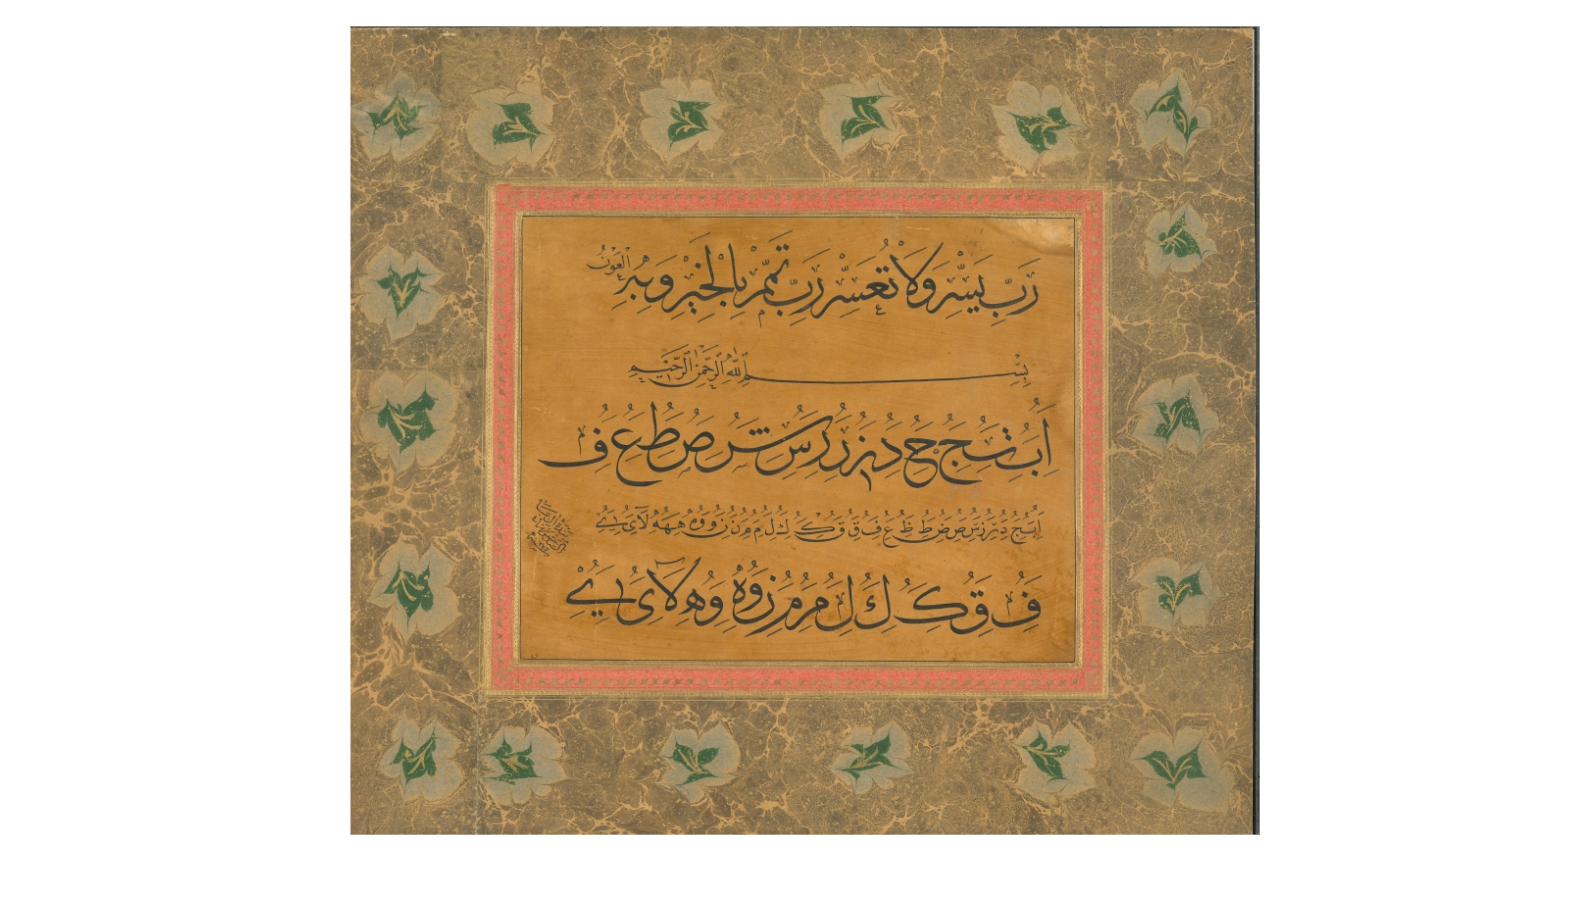 رَبِّ يَسِّرْ وَلَا تُعَسِّرْ رَبِّ تَمِّمْ بِالْخَيْرِ وَبِهِ الْعَوْنُ
بِسْمِ اللهِ الرَّحْمٰنِ الرَّحِيمِ
ا ب ت ج ح د ذ ر ز س ش ص ط ع ف
ا ب ج د ر ز س ص ض ط ظ ع ف ق ق ك ك ل م م ن ن و و ه ه ه لا ى ے
ف ق ك ك ل م م ن و ه و ه لا ى ے